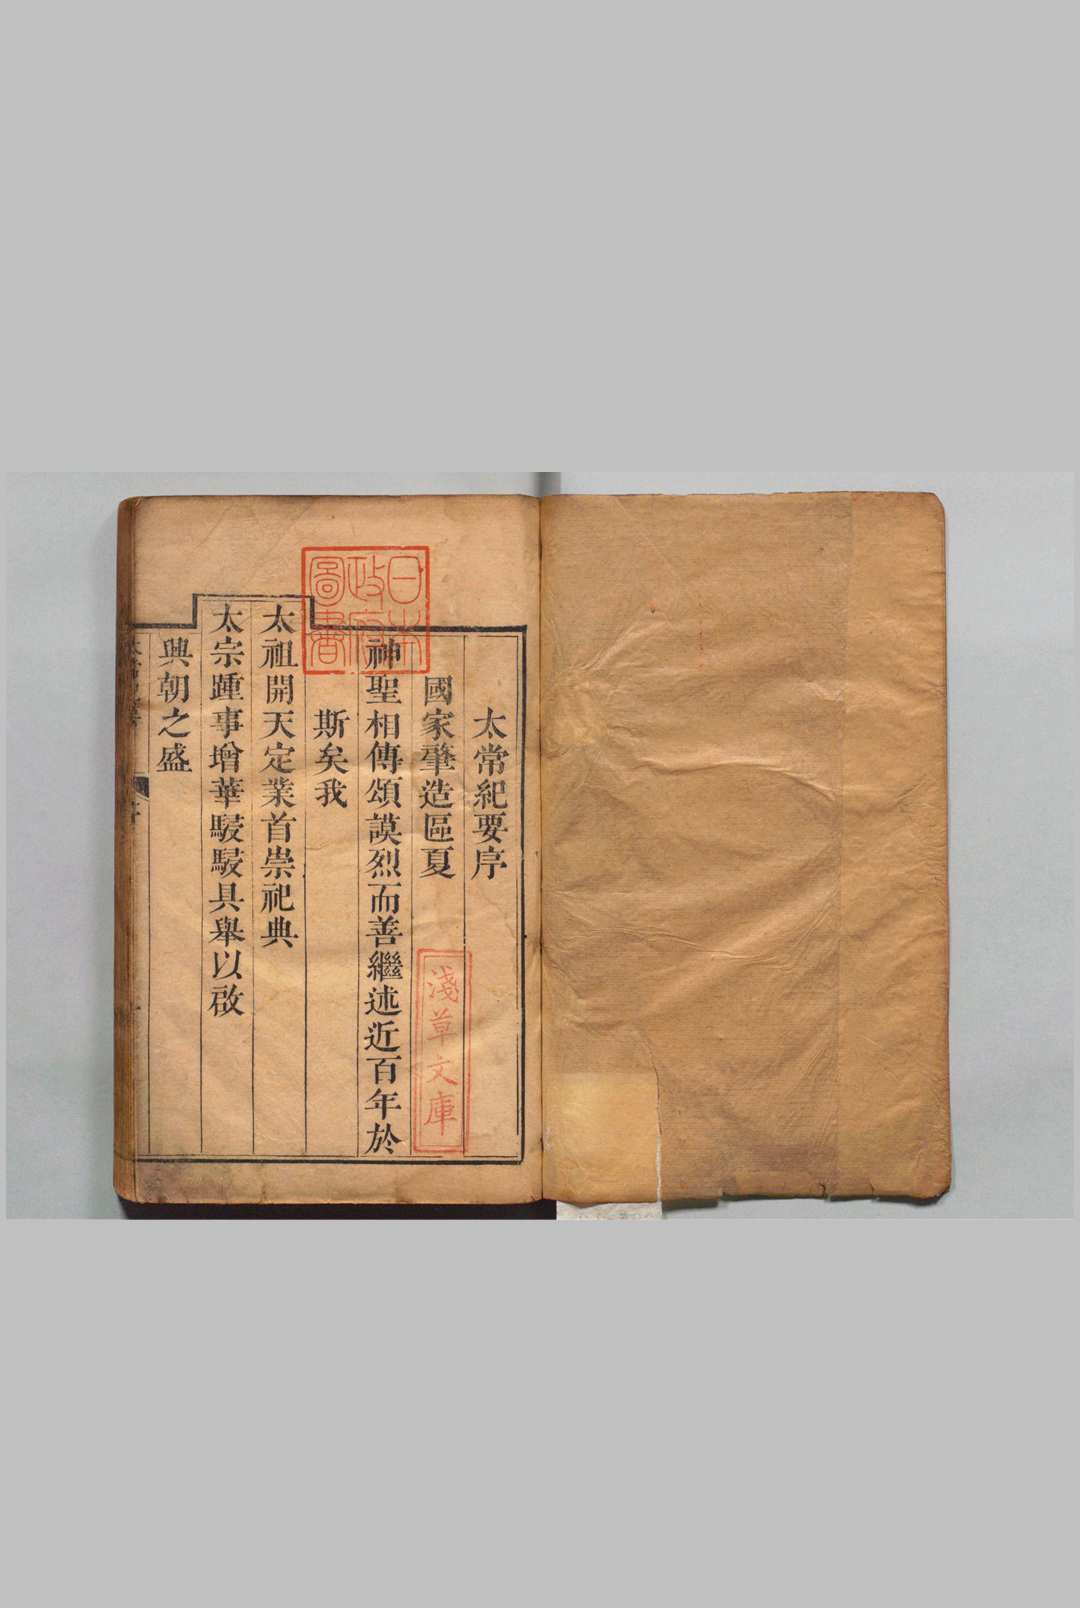 太常紀要序
國家肇造區夏
神聖相傳頌謨烈而善繼述近百年於
斯矣我
太祖開天定業首崇祀典
太宗踵事增華駸駸具舉以啟
興朝之盛
日本
政府
圖書
淺草文庫